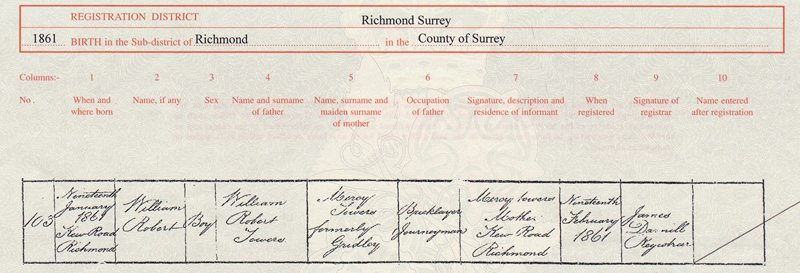 REGISTRATION DISTRICT Richmond Surrey
1861 BIRTH in the Sub-district of Richmond in the County of Surrey
Columns:- 1 2 3 4 5 6 7 8 9 10
No. When and where born Name, if any Sex Name and surname of father Name, surname and maiden surname of mother Occupation of father Signature, description and residence of informant When registered Signature of registrar Name entered after registration
103
Nineteenth
January
1861
Kew Road
Richmond
William
Robert
Boy
William
Robert
Towers
Mercy
Towers
formerly
Gridley
Bricklayer
Journeyman
Mercy Towers
Mother
Kew Road
Richmond
Nineteenth
February
1861
James
Registrar